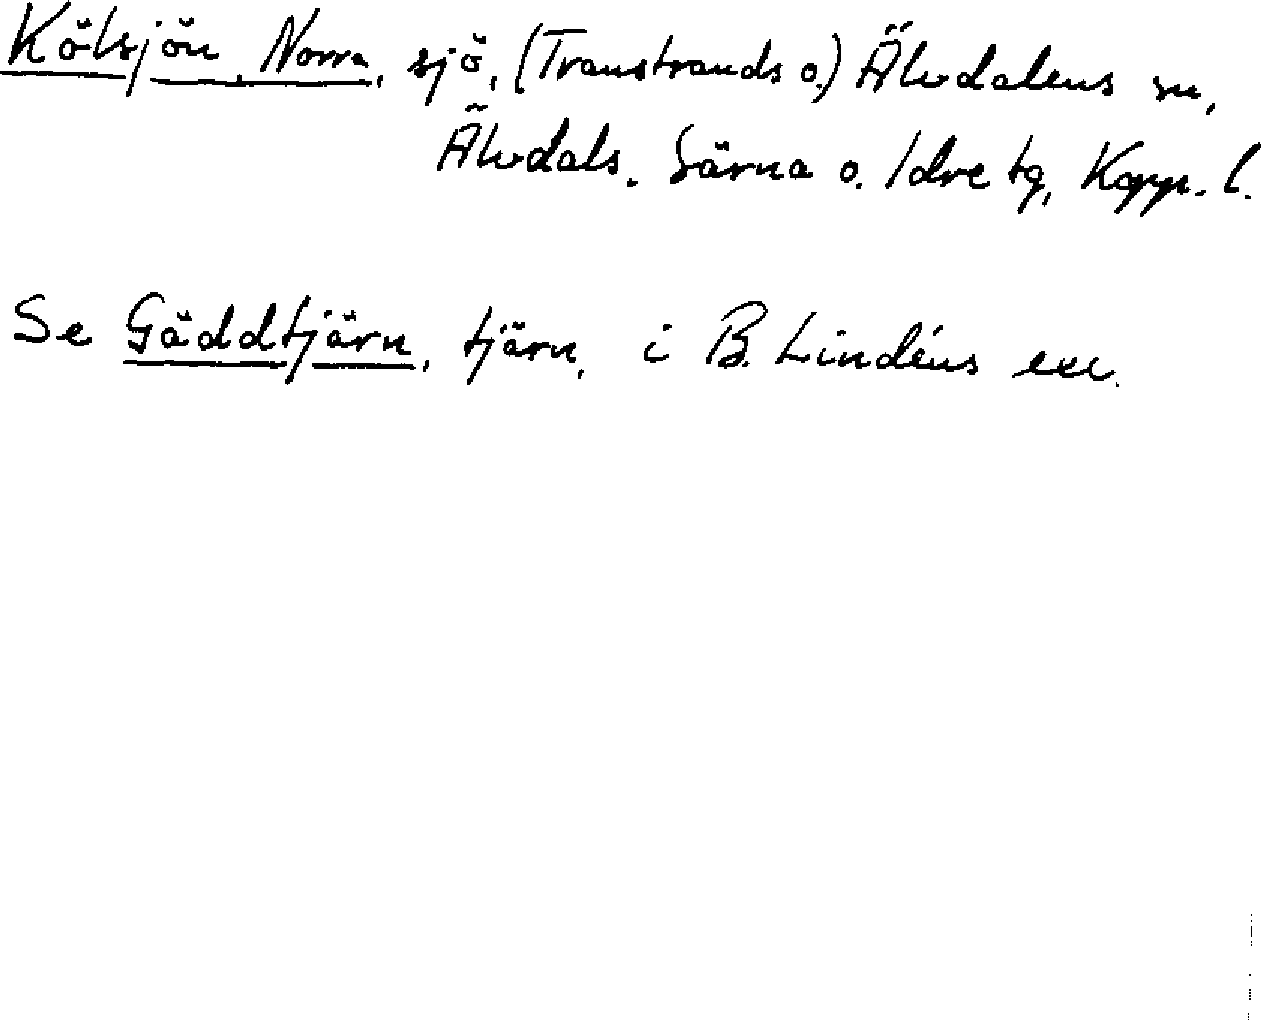 Kölsjön, Norra, sjö, (Transtrands o.) Älvdalens sn,
Älvdals, Särna o. Idre tg, Kopp. l.
Se Gäddtjärn, tjärn, i B. Lindéns exc.